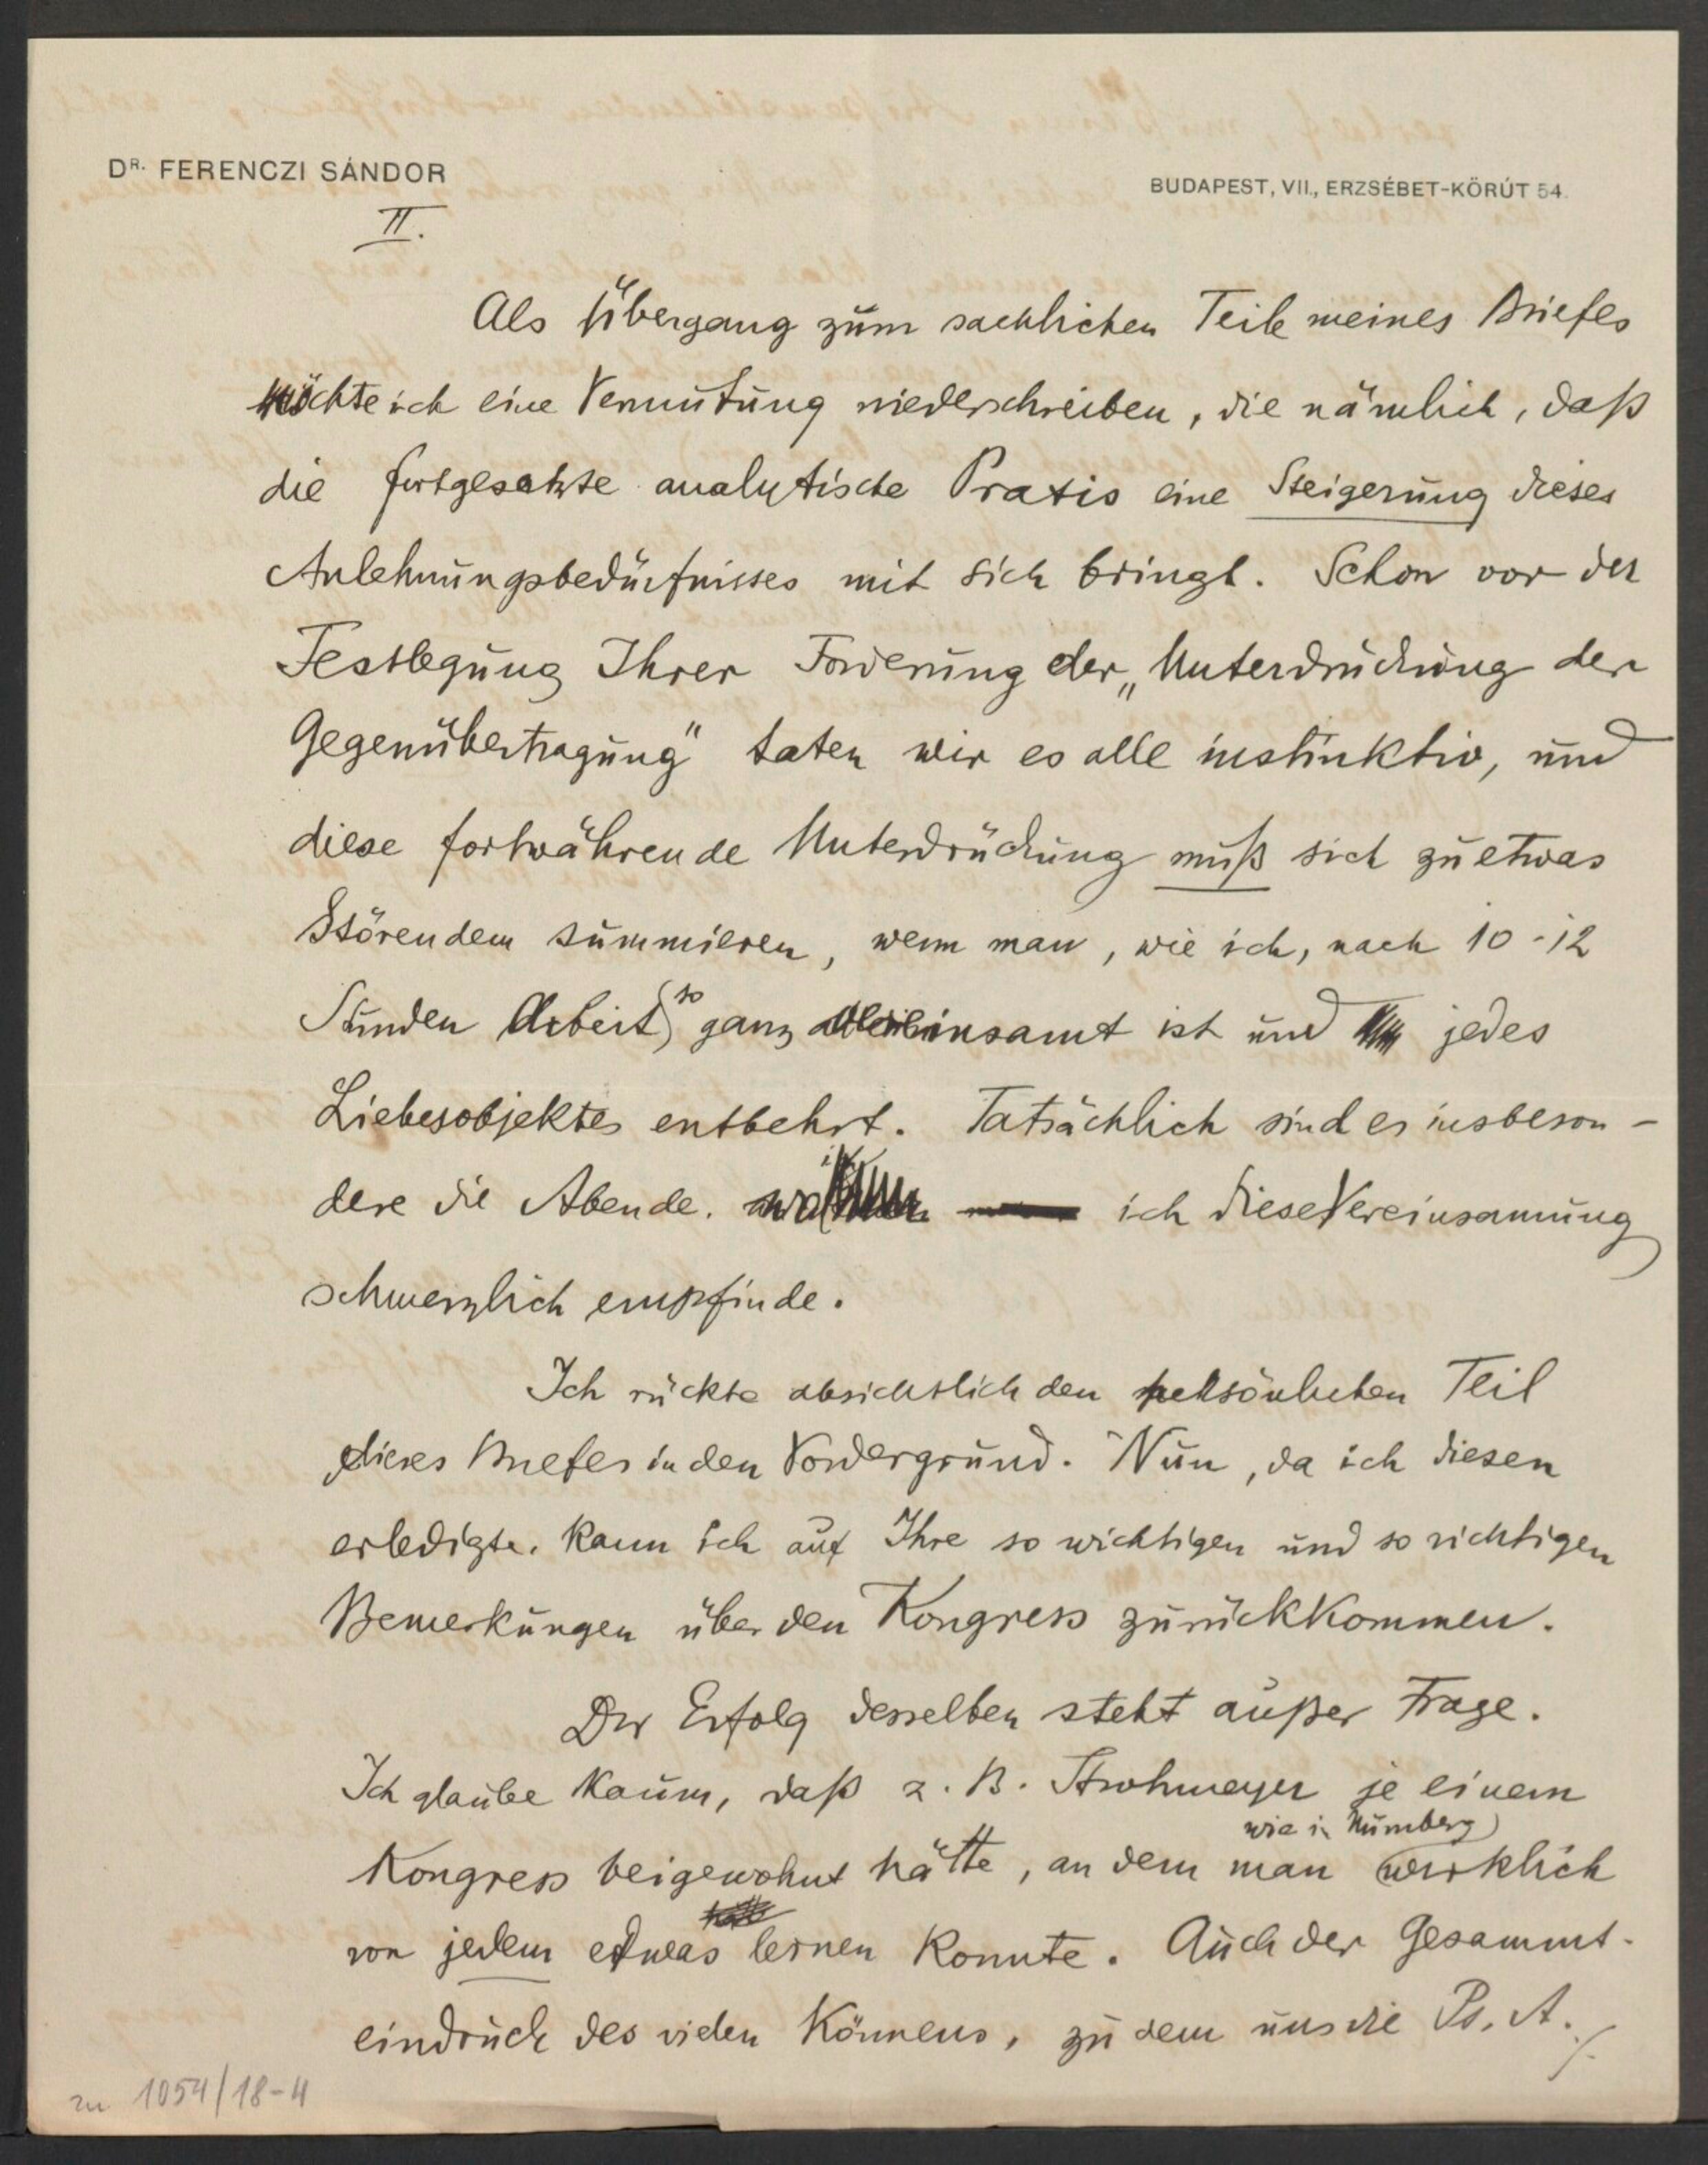 DR. FERENCZI SÁNDOR
BUDAPEST, VII., ERZSÉBET-KÖRÚT 54.
II.
Als Übergang zum sachlichen Teile meines Briefes
möchte ich eine Vermutung niederschreiben, die nämlich, daß
die fortgesetzte analytische Praxis eine Steigerung dieses
Anlehnungsbedürfnisses mit sich bringt. Schon vor der
Festlegung Ihrer Forderung der „Unterdrückung der
Gegenübertragung" taten wir es alle instinktiv, und
diese fortwährende Unterdrückung muß sich zu etwas
Störendem summieren, wenn man, wie ich, nach 10-12
Stunden Arbeit so ganz vereinsamt ist und jedes
Liebesobjektes entbehrt. Tatsächlich sind es insbeson-
dere die Abende, ich diese Vereinsamung
schmerzlich empfinde.
Ich rückte absichtlich den persönlichen Teil
dieses Briefes in den Vordergrund. Nun, da ich diesen
erledigte, kann ich auf Ihre so wichtigen und so richtigen
Bemerkungen über den Kongress zurückkommen.
Der Erfolg desselben steht außer Frage.
Ich glaube kaum, daß z. B. Strohmayer je einem
wie in Nürnberg
Kongress beigewohnt hätte, an dem man wirklich
von jedem etwas lernen konnte. Auch der Gesammt-
eindruck des vielen Könnens, zu dem uns die Ps. A. ./.
zu 1054/18-4